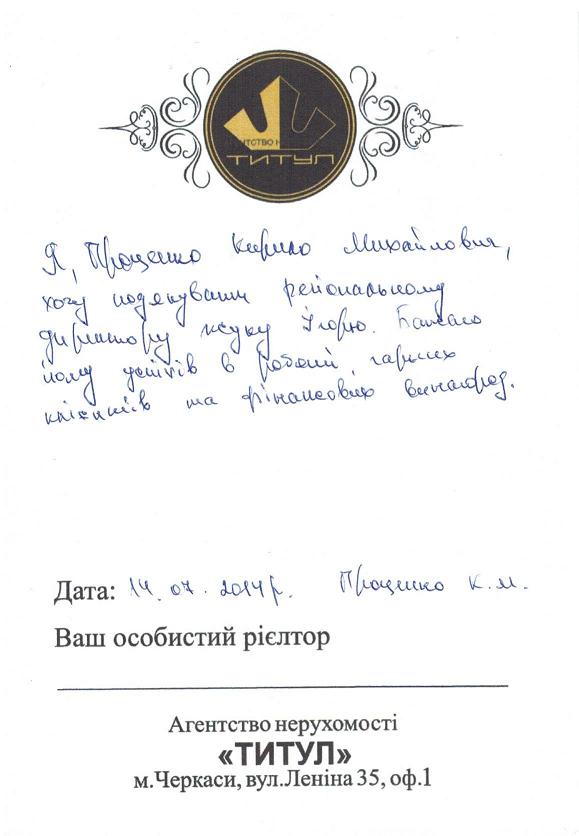 НТСТВО Н
ТИТУЛ
Я, Проценко Кирило Михайлович,
хочу подякувати регіональному
директору Жуку Ігорю. Бажаю
йому успіхів в роботі, гарних
клієнтів та фінансових винагород.
Дата: 14.07.2014р. Проценко К.М.
Ваш особистий рієлтор
Агентство нерухомості
«ТИТУЛ»
м.Черкаси, вул.Леніна 35, оф.1